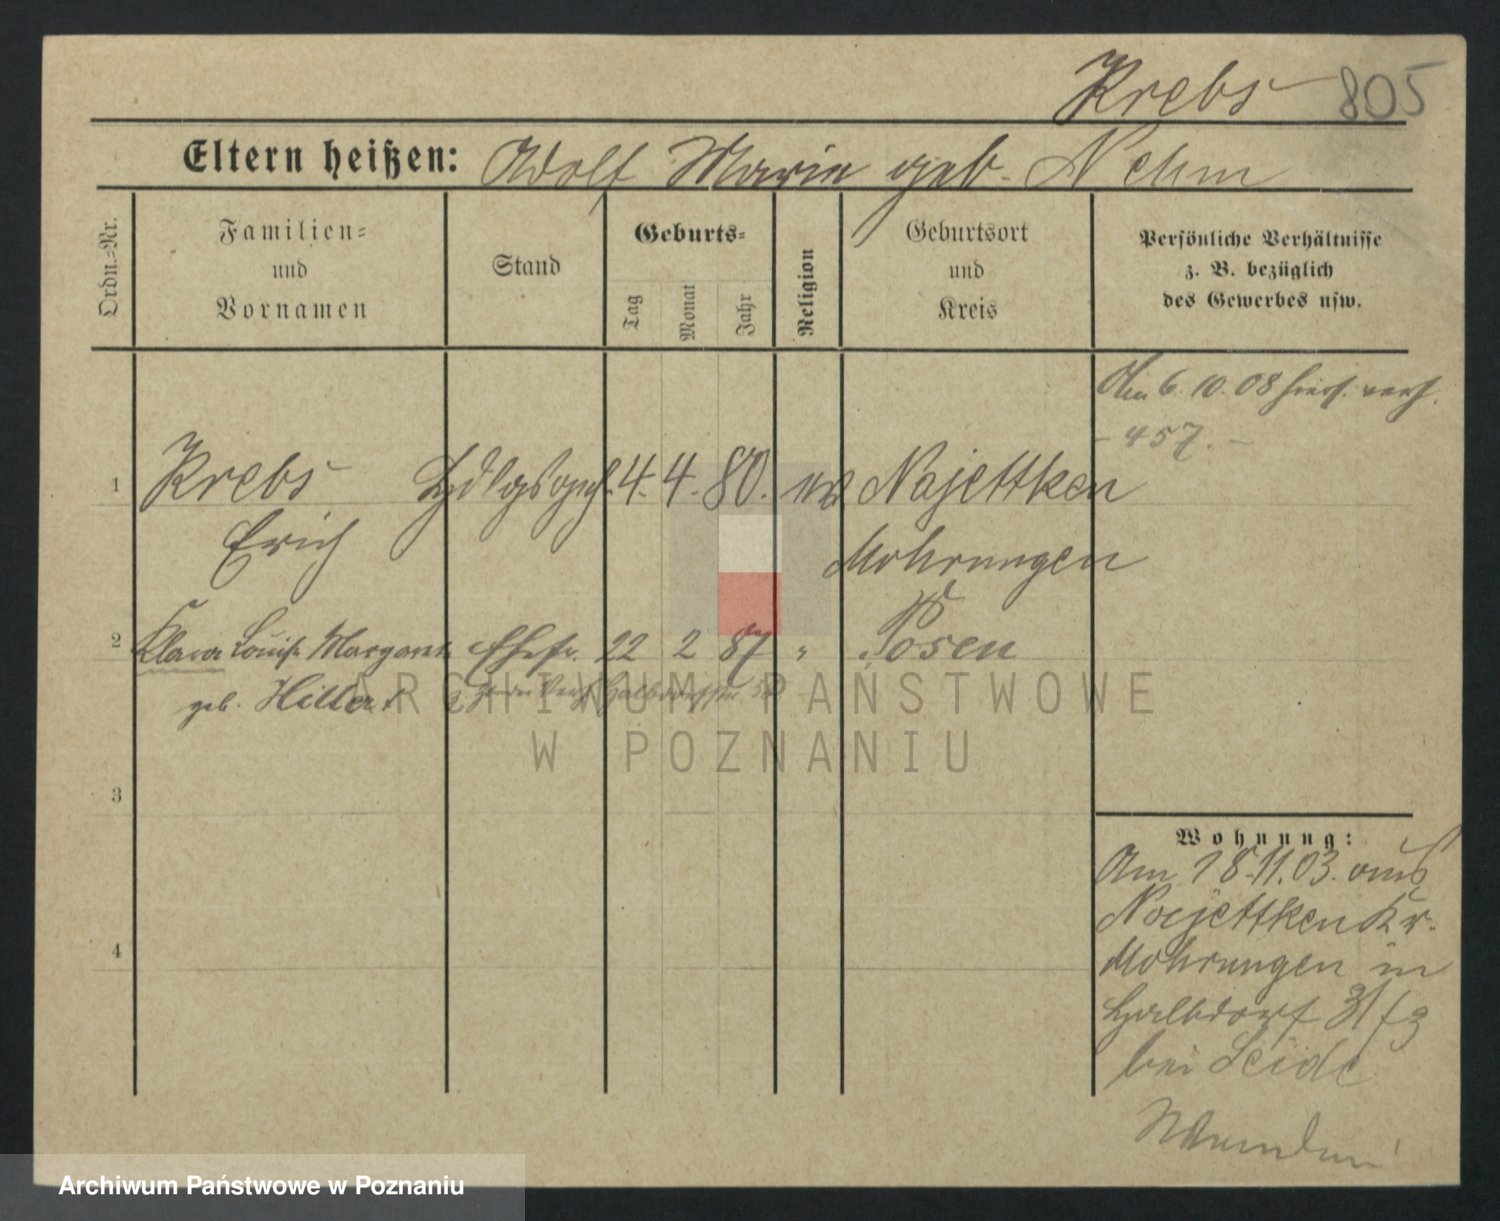 Krebs 805
Eltern heißen: Adolf Marie geb. Nehm
Ordn.-Nr.
Familien-
und
Vornamen
Stand
Geburts-
Tag
Monat
Jahr
Religion
Geburtsort
und
Kreis
Persönliche Verhältnisse
z. B. bezüglich
des Gewerbes usw.
Am 6. 10. 08
- 457. -
1 Krebs Hdlgsgeh. 4. 4. 80. ev Najettken
Erich Mohrungen
2 Klara Louise Margarete Ehefr. 22 2 87 " Posen
geb. Hillert
3
4
Wohnung:
Am 18.11.03. aus
Najettken Kr.
Mohrungen in
Halbdorf 31/f3
bei Seide
ARCHIWUM PAŃSTWOWE
W POZNANIU
Archiwum Państwowe w Poznaniu